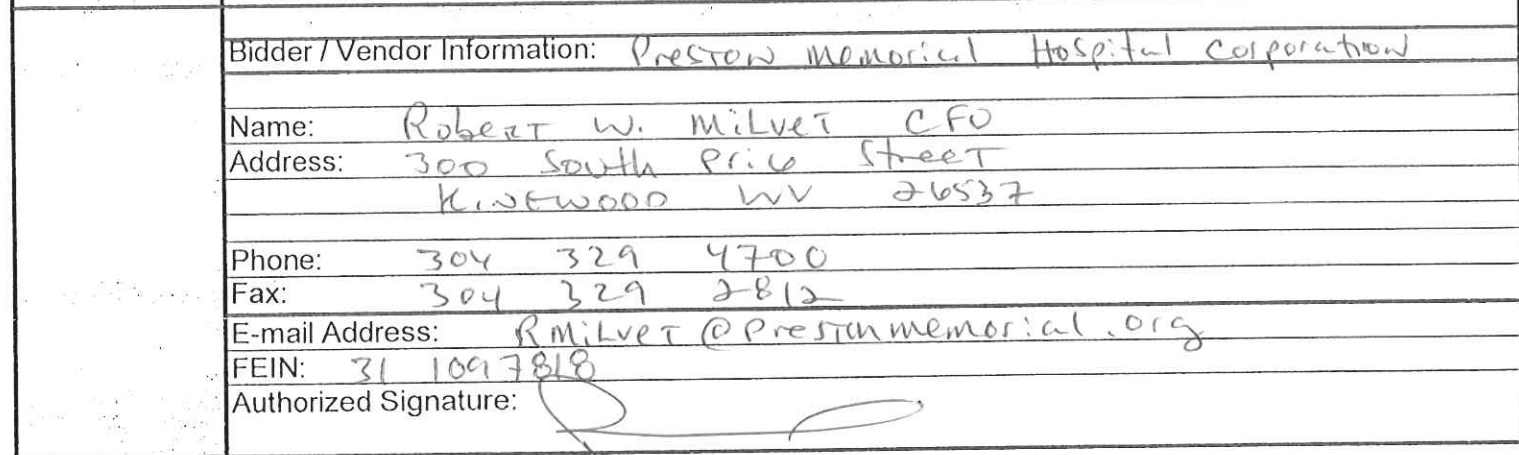 Bidder / Vendor Information: Preston Memorial Hospital Corporation
Name: Robert W. Milvet CFO
Address: 300 South Price Street
Kingwood WV 26537
Phone: 304 329 4700
Fax: 304 329 2812
E-mail Address: RMilvet@Prestonmemorial.org
FEIN: 31 1097818
Authorized Signature: